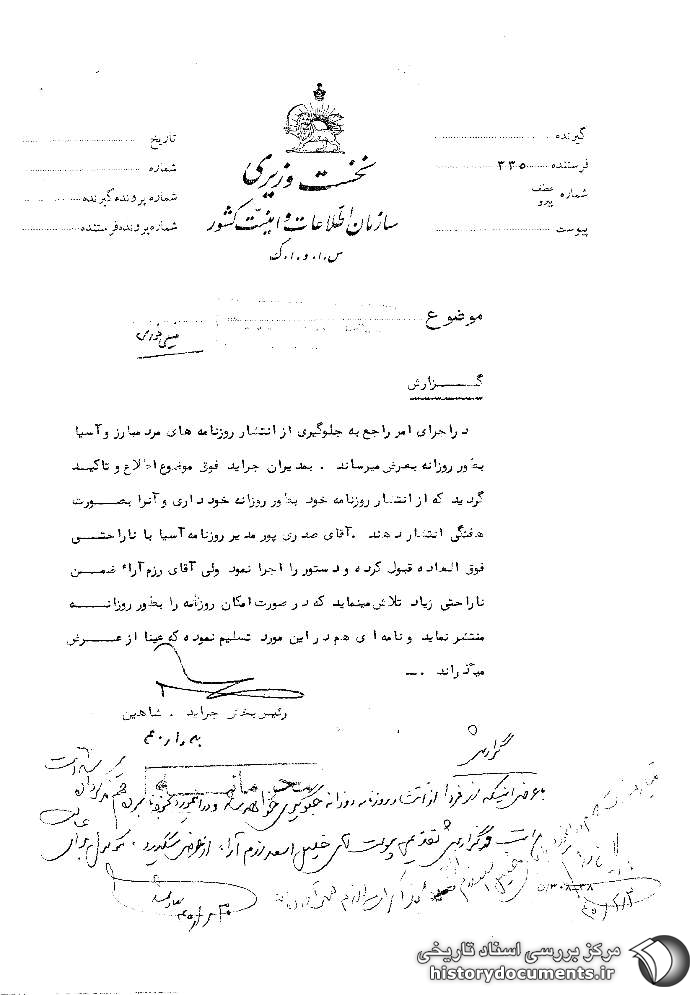 نخست وزیری
سازمان اطلاعات و امنیت کشور
س.ا.و.ا.ک
گیرنده
فرستنده ۳۳۵
شماره عطف پیرو
پیوست
تاریخ
شماره
شماره پرونده گیرنده
شماره پرونده فرستنده
موضوع
خیلی فوری
گزارش
در اجرای امر راجع به جلوگیری از انتشار روزنامه های مرد مبارز و آسیا
بطور روزانه بعرض میرساند . بمدیران جراید فوق موضوع اطلاع و تاکید
گردید که از انتشار روزنامه خود بطور روزانه خود داری و آنرا بصورت
هفتگی انتشار دهند . آقای صدری پور مدیر روزنامه آسیا با ناراحتی
فوق العاده قبول کرده و دستور را اجرا نمود ولی آقای رزم آراء ضمن
ناراحتی زیاد تلاش مینماید که در صورت امکان روزنامه را بطور روزانه
منتشر نماید و نامه ای هم در این مورد تسلیم نموده که عینا از عرض
میگذراند .
رئیس بخش جراید . شاهین
گزارش
بعرض اینکه از فردا از انتشار روزنامه روزانه جلوگیری خواهد شد
گزارش تقدیمی پیوست آقای خلیل اسعد رزم آرا از عرض میگذرد
مرکز بررسی اسناد تاریخی
historydocuments.ir